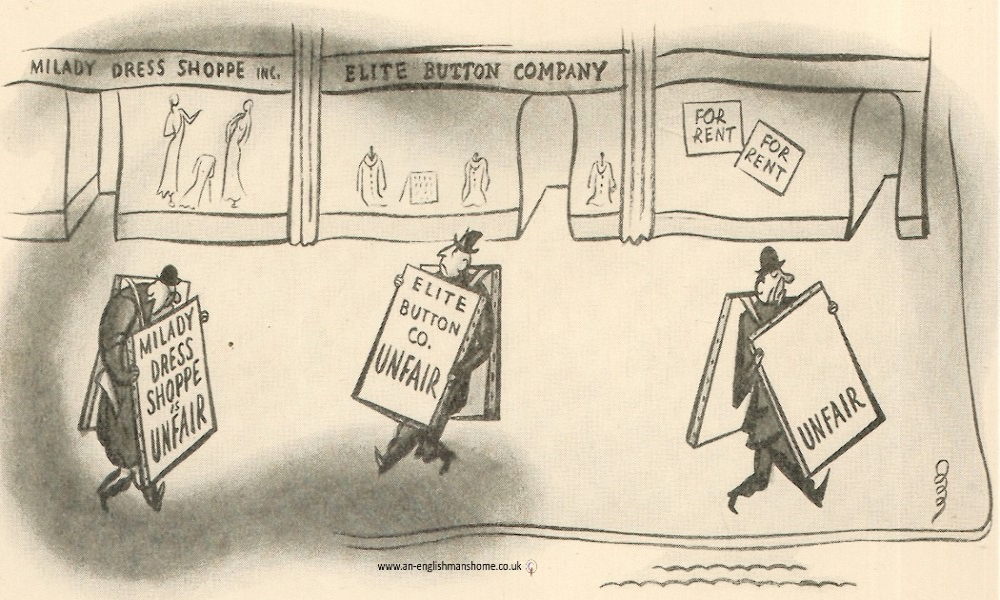 MILADY DRESS SHOPPE INC.
ELITE BUTTON COMPANY
FOR
RENT
FOR
RENT
MILADY
DRESS
SHOPPE
is
UNFAIR
ELITE
BUTTON
CO.
UNFAIR
UNFAIR
www.an-englishmanshome.co.uk